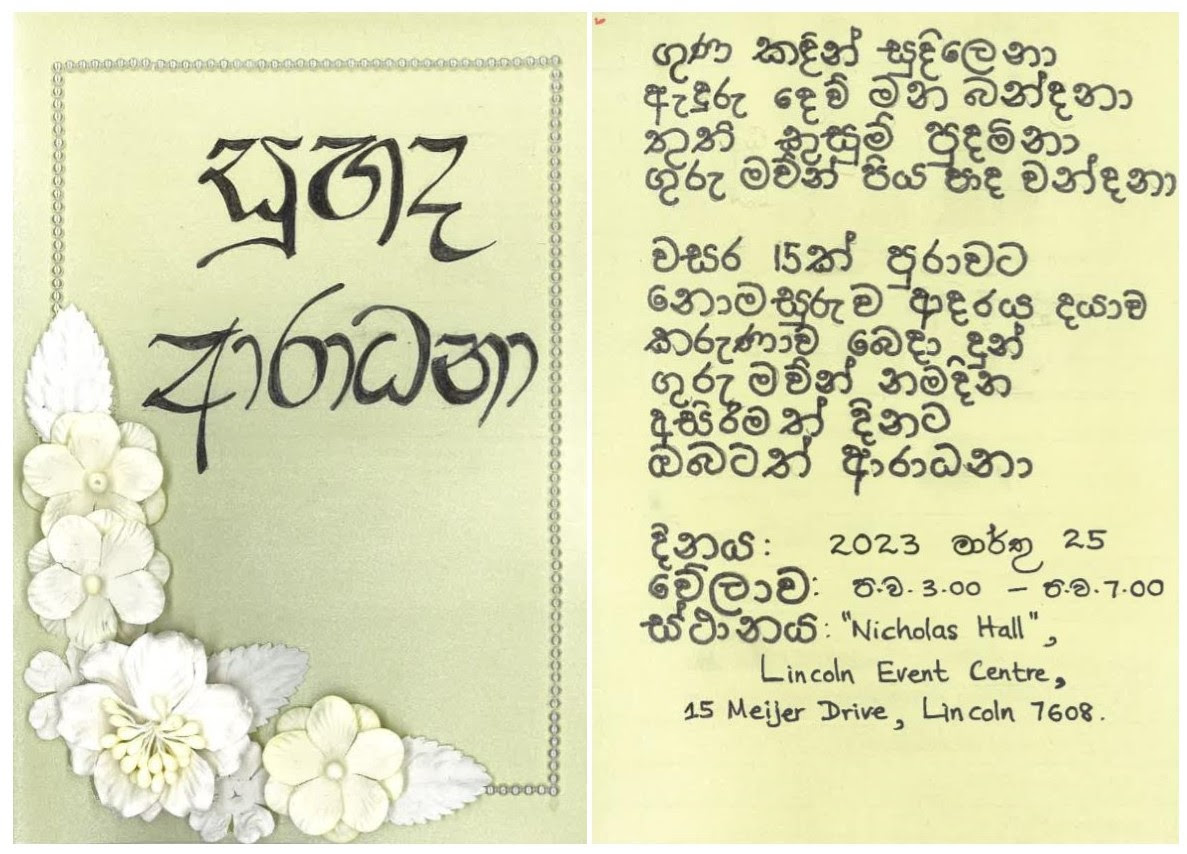 සුහද
ආරාධනා
ගුණ කඳින් සුදිලෙනා
ඇදුරු දෙව් මන බන්දනා
තුති කුසුම් පුදමිනා
ගුරු මව්න් පිය පාද වන්දනා
වසර 15ක් පුරාවට
නොමසුරුව ආදරය දයාව
කරුණාව බෙදා දුන්
ගුරු මව්න් නමදින
අසිරිමත් දිනට
ඔබටත් ආරාධනා
දිනය: 2023 මාර්තු 25
වේලාව: ප.ව. 3.00 – ප.ව. 7.00
ස්ථානය: "Nicholas Hall",
Lincoln Event Centre,
15 Meijer Drive, Lincoln 7608.